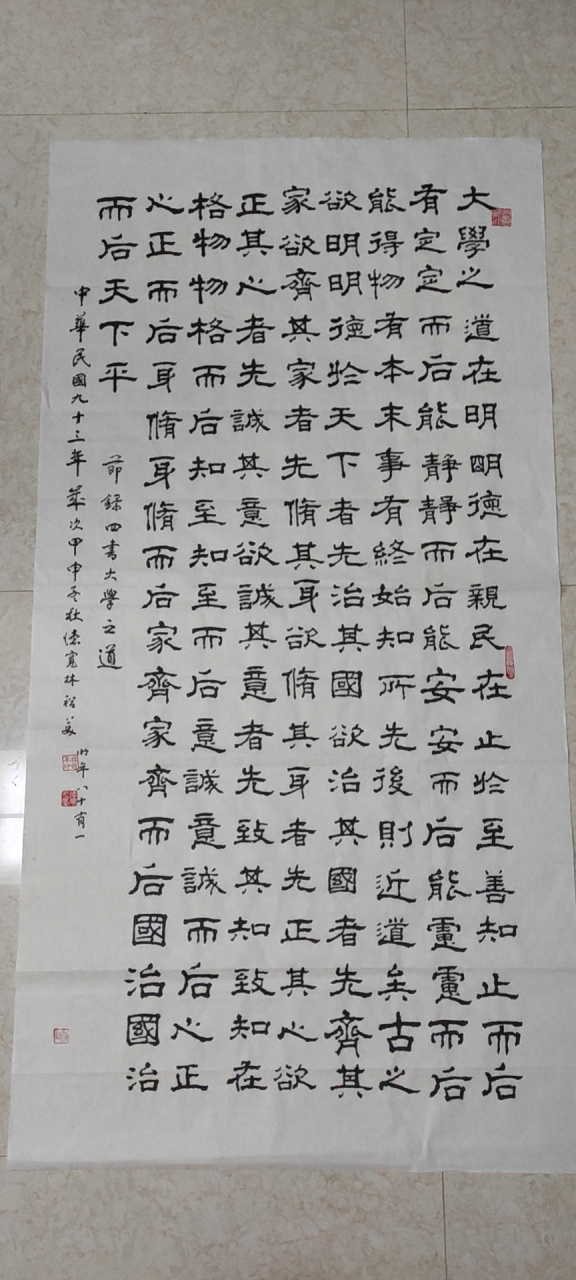 大學之道在明明德在親民在止於至善知止而后
有定定而后能靜靜而后能安安而后能慮慮而后
能得物有本末事有終始知所先後則近道矣古之
欲明明德於天下者先治其國欲治其國者先齊其
家欲齊其家者先脩其身欲脩其身者先正其心欲
正其心者先誠其意欲誠其意者先致其知致知在
格物物格而后知至知至而后意誠意誠而后心正
心正而后身脩身脩而后家齊家齊而后國治國治
而后天下平
節錄四書大學之道
中華民國九十三年歲次甲申秋林時年八十有一